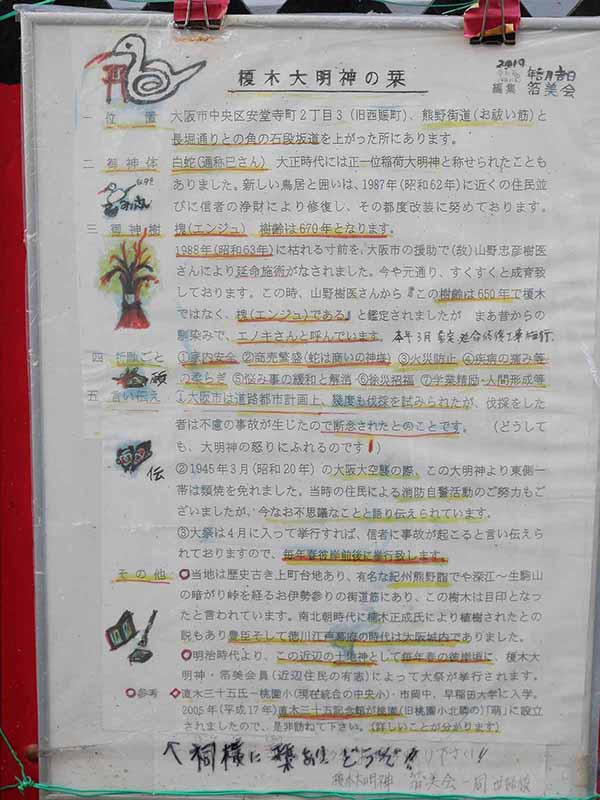 榎木大明神の栞
2019
編集 箔美会
一 位置 大阪市中央区安堂寺町2丁目3(旧西賑町)、熊野街道(お祓い筋)と
長堀通りとの角の石段坂道を上がった所にあります。
二 御神体 白蛇(通称巳さん) 大正時代には正一位稲荷大明神と称せられたことも
ありました。新しい鳥居と囲いは、1987年(昭和62年)に近くの住民並
びに信者の浄財により修復し、その都度改装に努めております。
三 御神樹 槐(エンジュ) 樹齢は670年となります。
1988年(昭和63年)に枯れる寸前を、大阪市の援助で(故)山野忠彦樹医
さんにより延命施術がなされました。今や元通り、すくすくと成育致
しております。この時、山野樹医さんから『この樹齢は650年で榎木
ではなく、槐(エンジュ)である』と鑑定されましたが まあ昔からの
馴染みで、エノキさんと呼んでいます。本年3月
四 祈願ごと ①家内安全 ②商売繁盛(蛇は商いの神様) ③火災防止 ④疾病の痛み等
の柔らぎ ⑤悩み事の緩和と解消 ⑥除災招福 ⑦学業精励・人間形成等
願
五 言い伝え ①大阪市は道路都市計画上、幾度も伐採を試みられたが、伐採をした
者は不慮の事故が生じたので断念されたとのことです。 (どうして
も、大明神の怒りにふれるのです!)
伝
②1945年3月(昭和20年)の大阪大空襲の際、この大明神より東側一
帯は類焼を免れました。当時の住民による消防自警活動のご努力もご
ざいましたが、今なお不思議なことと語り伝えられています。
③大祭は4月に入って挙行すれば、信者に事故が起こると言い伝えら
れておりますので、毎年春彼岸前後に挙行致します。
その他 ○当地は歴史古き上町台地あり、有名な紀州熊野詣でや深江~生駒山
の暗がり峠を経るお伊勢参りの街道筋にあり、この樹木は目印となっ
たと言われています。南北朝時代に楠木正成氏により植樹されたとの
説もあり豊臣そして徳川江戸幕府の時代は大阪城内でありました。
○明治時代より、この近辺の土地神として毎年春の彼岸頃に、榎木大
明神・箔美会員(近辺住民の有志)によって大祭が挙行されます。
○参考 ◇直木三十五氏―桃園小(現在統合の中央小)・市岡中、早稲田大学に入学。
2005年(平成17年)直木三十五記念館が桃園(旧桃園小北隣の)「萌」に設立
されましたので、是非訪ねて下さい。(詳しいことが分かります)
榎木大明神 箔美会一同